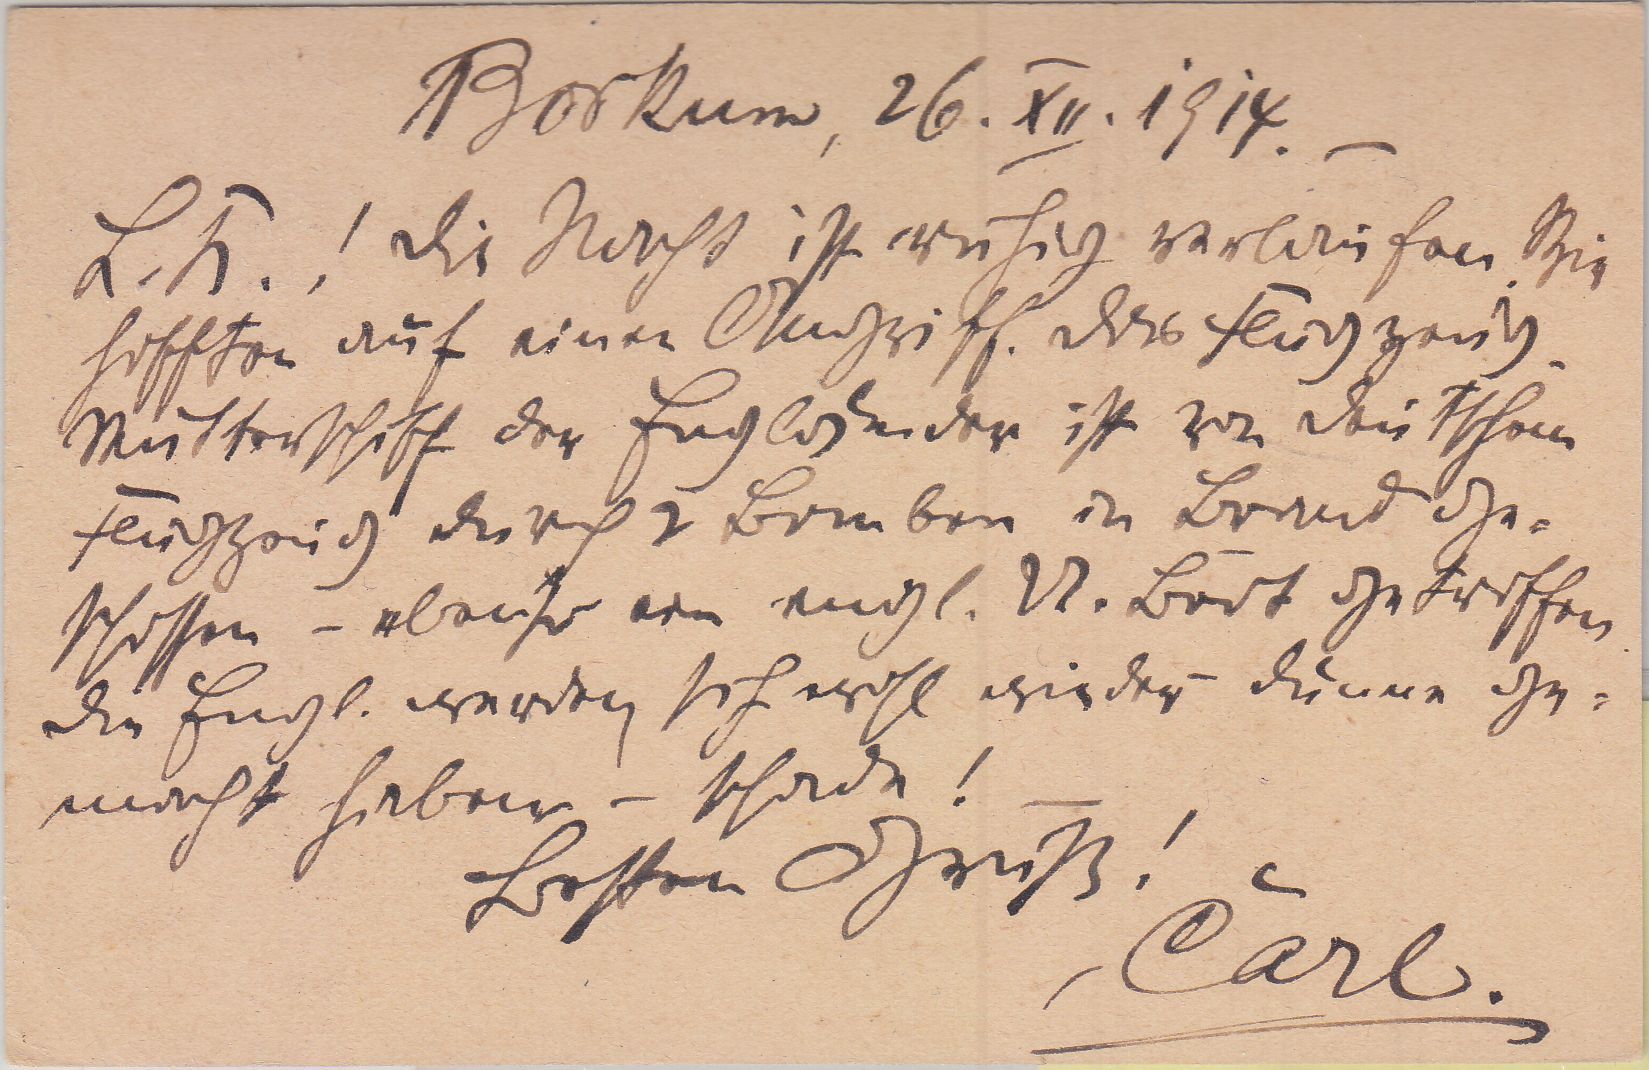 Borkum, 26. XII. 1914.
L. K.! Die Nacht ist ruhig verlaufen. Wir
hofften auf einen Angriff. Das Flugzeug-
Mutterschiff der Engländer ist von deutschem
Flugzeug durch 2 Bomben in Brand ge-
schossen – ebenso ein engl. U. Boot getroffen.
Die Engl. werden sich wohl wieder dünne ge-
macht haben – schade!
Besten Gruß!
Carl.